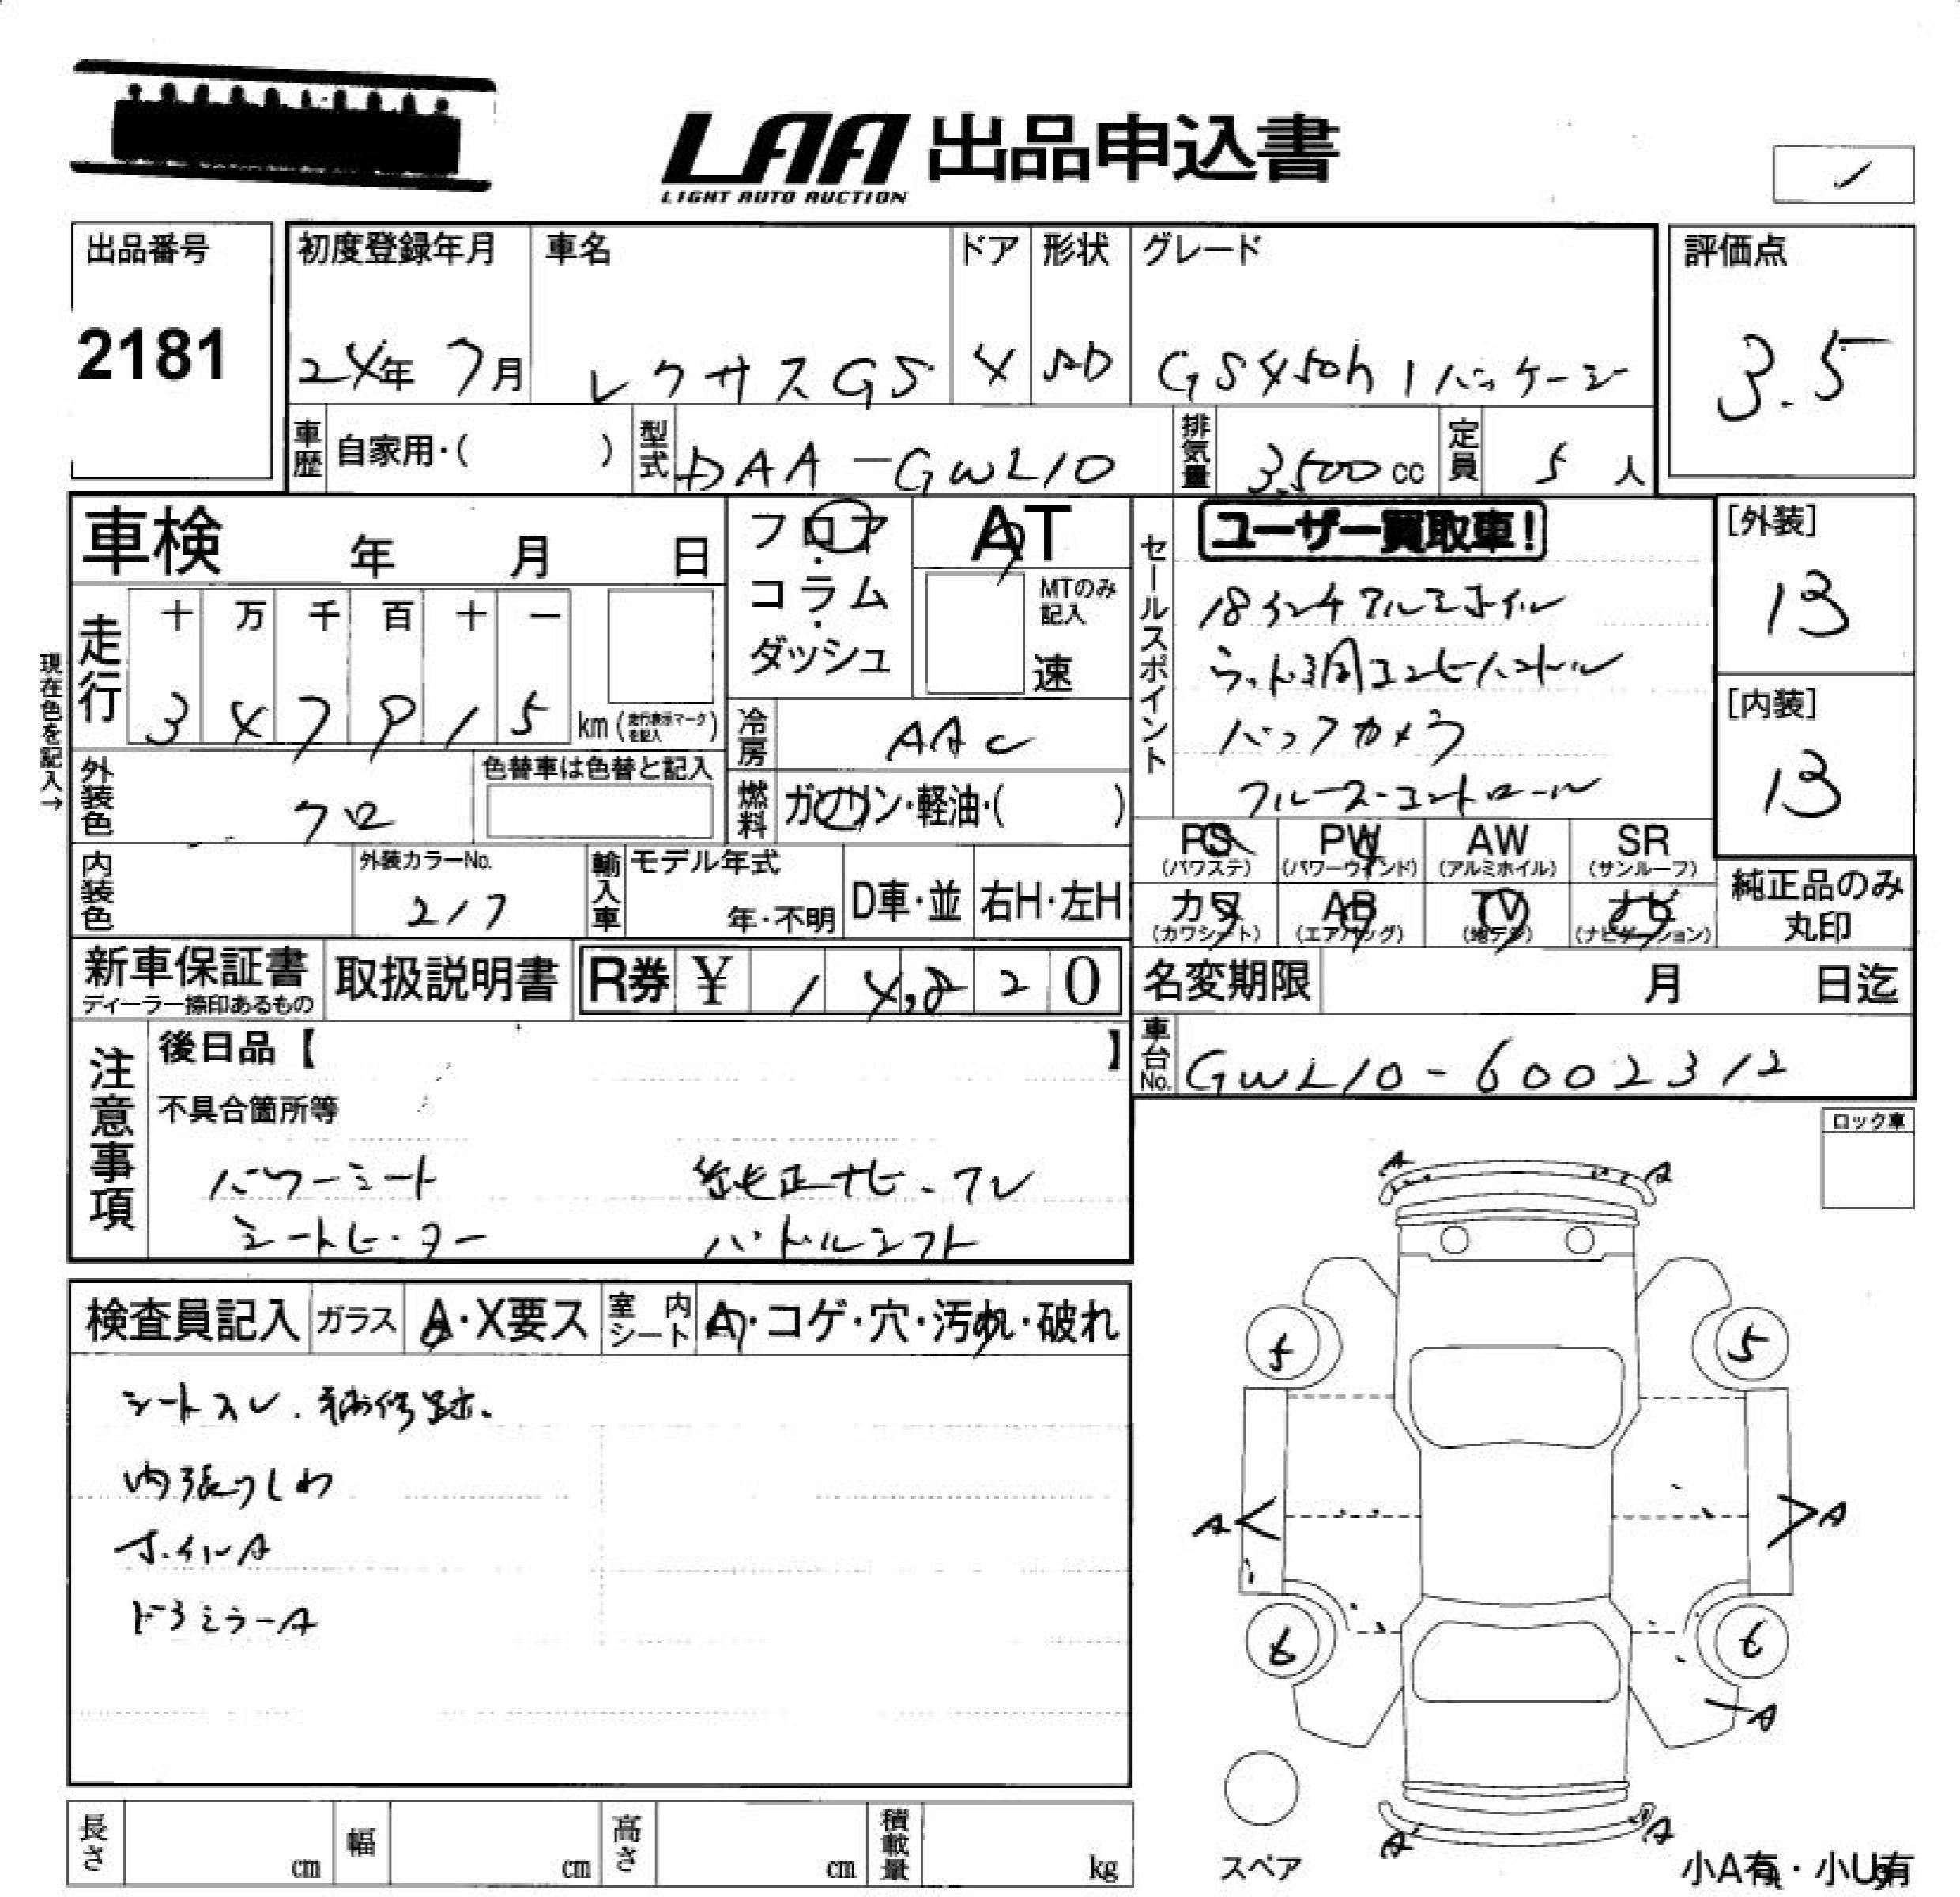 LAA 出品申込書
LIGHT AUTO AUCTION
出品番号
2181
初度登録年月
24年 7月
車名
レクサスGS
ドア
4
形状
SD
グレード
GS450h Iパッケージ
評価点
3.5
車歴 自家用・( )
型式 DAA-GWL10
排気量 3,500 cc
定員 5 人
車検 年 月 日
フロア・コラム・ダッシュ
AT
MTのみ記入
速
セールスポイント
ユーザー買取車!
18インチアルミホイル
ウット調コンビハンドル
バックカメラ
クルーズ-コントロール
[外装]
B
[内装]
B
現在色を記入→
走行
十 万 千 百 十 一
3 4 7 9 1 5 km (走行表示マークを記入)
冷房 AAC
外装色 クロ
色替車は色替と記入
燃料 ガソリン・軽油・( )
PS (パワステ)
PW (パワーウインド)
AW (アルミホイル)
SR (サンルーフ)
カワ (カワシート)
AB (エアバッグ)
TV (地デジ)
ナビ (ナビゲーション)
純正品のみ丸印
内装色
外装カラーNo.
217
輸入車
モデル年式
年・不明
D車・並
右H・左H
新車保証書
ディーラー捺印あるもの
取扱説明書
R券 ¥ 14,820
名変期限 月 日迄
車台No. GWL10-6002312
注意事項
後日品【 】
不具合箇所等
パワーシート 純正ナビ・TV
シートヒーター パドルシフト
ロック車
検査員記入
ガラス A・X要ス
室内シート A・コゲ・穴・汚れ・破れ
シートスレ.補修跡.
内張りしわ
ホイルA
ドアミラーA
A A
5 5
A A
6 6
A
A A
スペア
小A有・小U有
長さ cm
幅 cm
高さ cm
積載量 kg